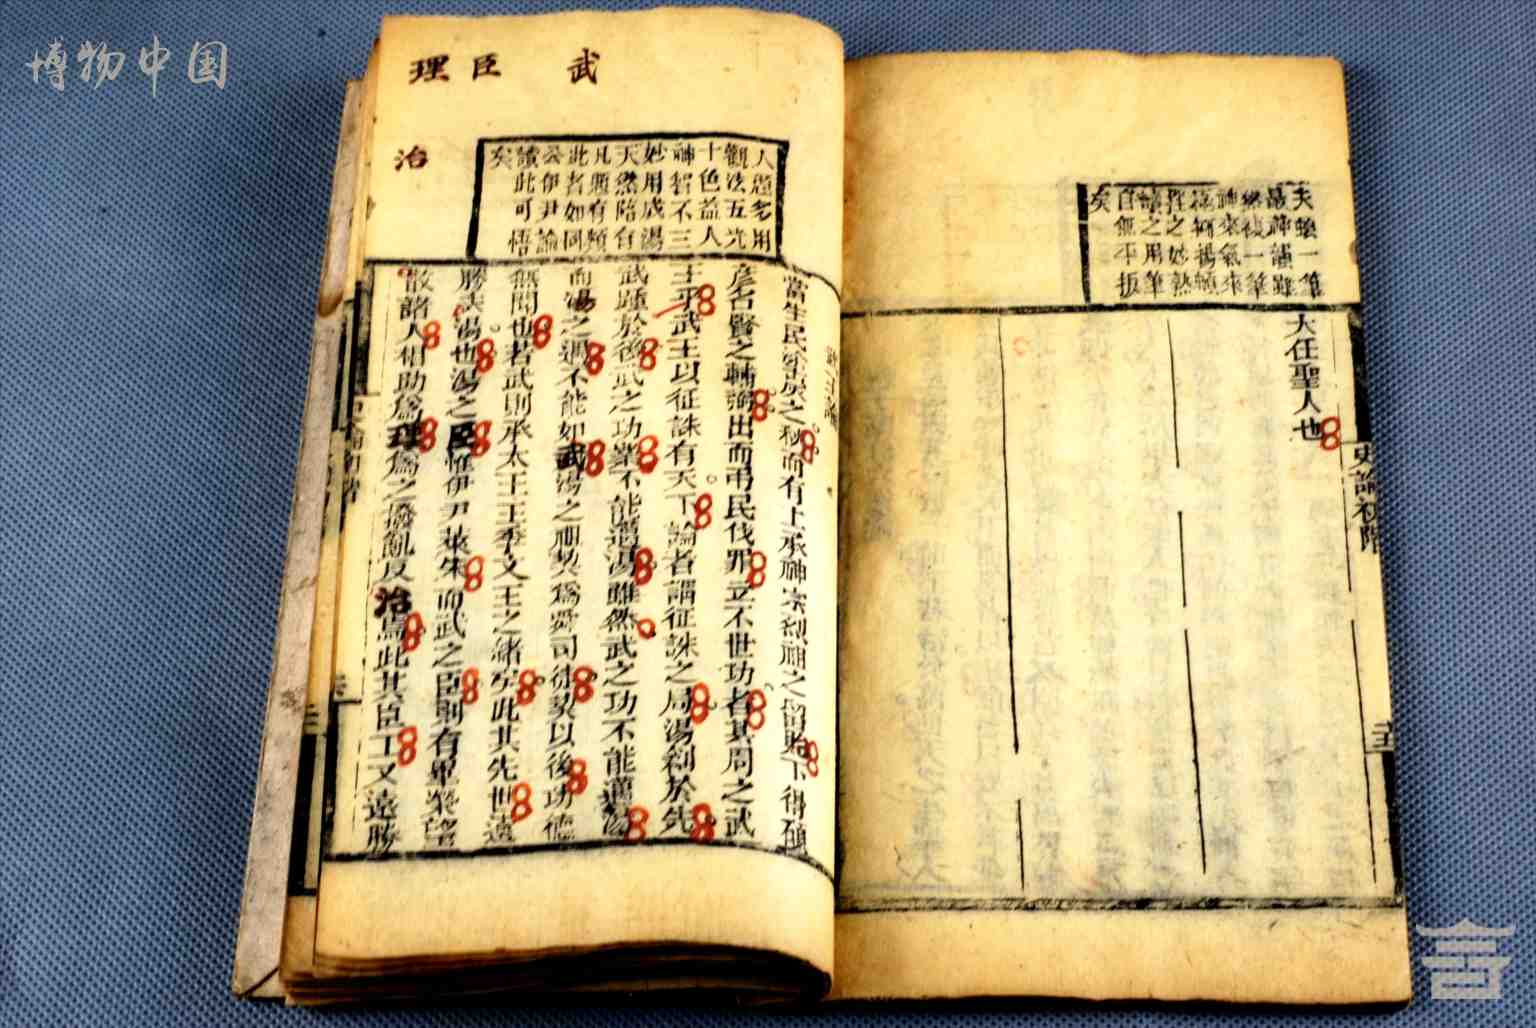 博物中国
夫蛤一筆
自無平扳
矣
大任聖人也
史論初階
武
臣
理
治
人題多用
觀法五光
十色益人
神智不三
妙用成湯
天然陪台
凡題有類
此者如同
公伊尹論
讀此可悟
矣
當生民塗炭之秋而有上承神宗烈祖之留貽下得碩
彥名賢之輔弼出而弔民伐罪立不世功者其周之武
王乎武王以征誅有天下論者謂征誅之局湯剏於先
武踵於後武之功業不能邁湯雖然武之功不能邁湯
而湯之遇不能如武湯之祖契為舜司徒契以後功德
無聞也若武則承太王王季文王之緒矣此其先世遠
勝於湯也湯之臣惟伊尹萊朱而武之臣則有畢榮望
散諸人相助為理為之撥亂反治焉此其臣工又遠勝